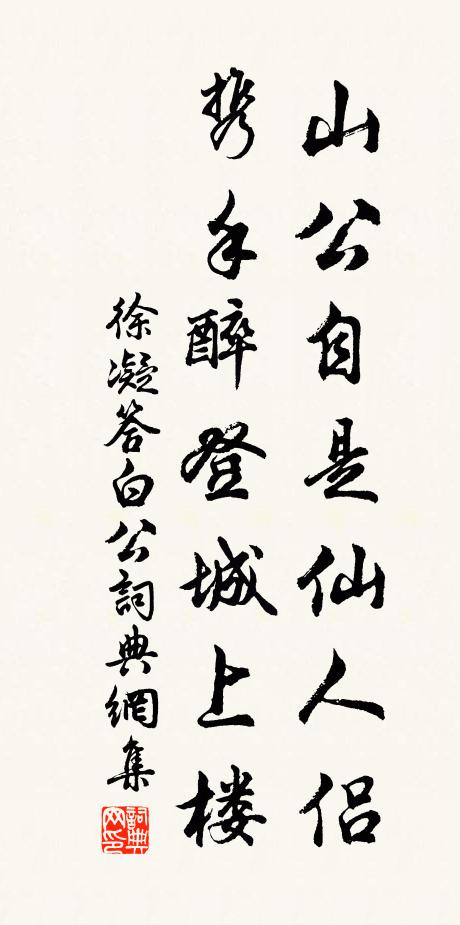 山公自是仙人侣
携手醉登城上楼
徐凝答白公詞典網集
詞典网印